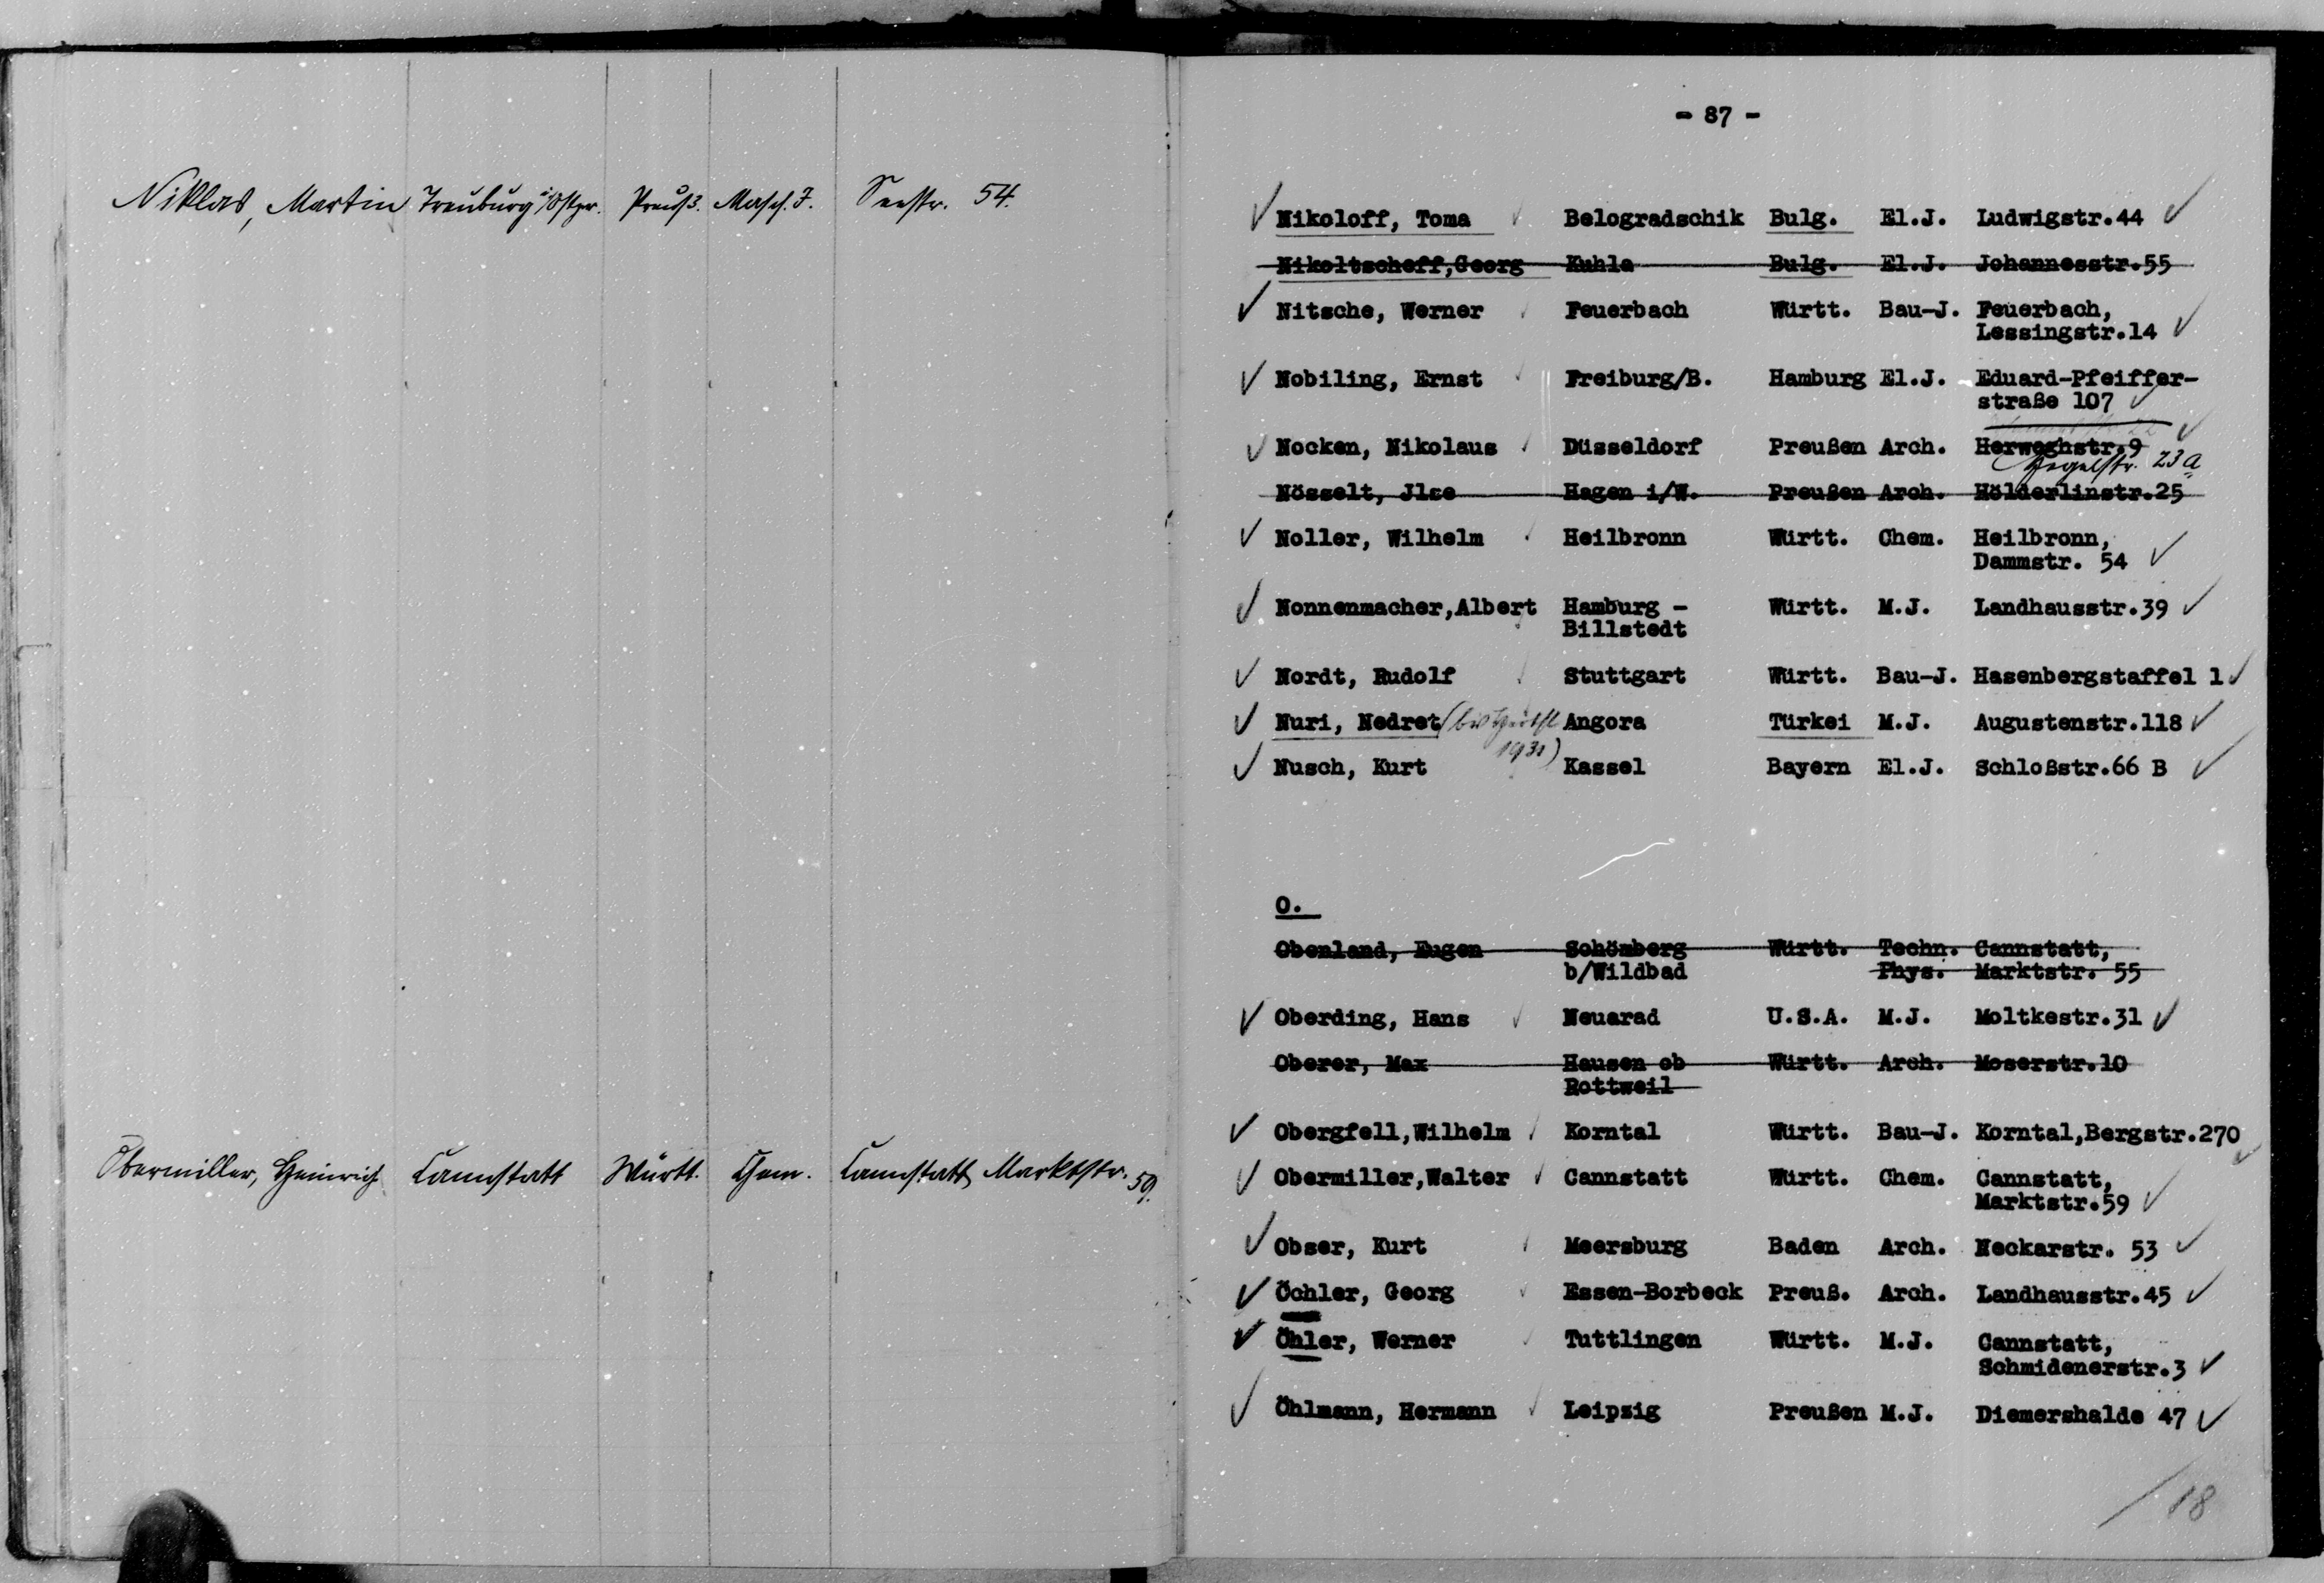 Niklas, Martin Treuburg i/Ostpr. Preuß. Masch. J. Seestr. 54.
Obermiller, Heinrich Cannstatt Württ. Chem. Cannstatt, Marktstr. 59.
- 87 -
Nikoloff, Toma Belogradschik Bulg. El.J. Ludwigstr.44
Nikoltschoff,Georg Kuhla Bulg. El.J. Johannesstr.55
Nitsche, Werner Feuerbach Württ. Bau-J. Feuerbach,
Lessingstr.14
Nobiling, Ernst Freiburg/B. Hamburg El.J. Eduard-Pfeiffer-
straße 107
Nocken, Nikolaus Düsseldorf Preußen Arch. Herweghstr.9
Hegelstr. 23 a
Nösselt, Jlse Hagen i/W. Preußen Arch. Hölderlinstr.25
Noller, Wilhelm Heilbronn Württ. Chem. Heilbronn,
Dammstr. 54
Nonnenmacher,Albert Hamburg - Württ. M.J. Landhausstr.39
Billstedt
Nordt, Rudolf Stuttgart Württ. Bau-J. Hasenbergstaffel 1
Nuri, Nedret (bis Herbst Angora Türkei M.J. Augustenstr.118
1931)
Nusch, Kurt Kassel Bayern El.J. Schloßstr.66 B
O.
Obenland, Eugen Schömberg Württ. Techn. Cannstatt,
b/Wildbad Phys. Marktstr. 55
Oberding, Hans Neuarad U.S.A. M.J. Moltkestr.31
Oberer, Max Hausen ob Württ. Arch. Moserstr.10
Rottweil
Obergfell,Wilhelm Korntal Württ. Bau-J. Korntal,Bergstr.270
Obermiller,Walter Cannstatt Württ. Chem. Cannstatt,
Marktstr.59
Obser, Kurt Meersburg Baden Arch. Neckarstr. 53
Öchler, Georg Essen-Borbeck Preuß. Arch. Landhausstr.45
Öhler, Werner Tuttlingen Württ. M.J. Cannstatt,
Schmidenerstr.3
Öhlmann, Hermann Leipzig Preußen M.J. Diemershalde 47
/18